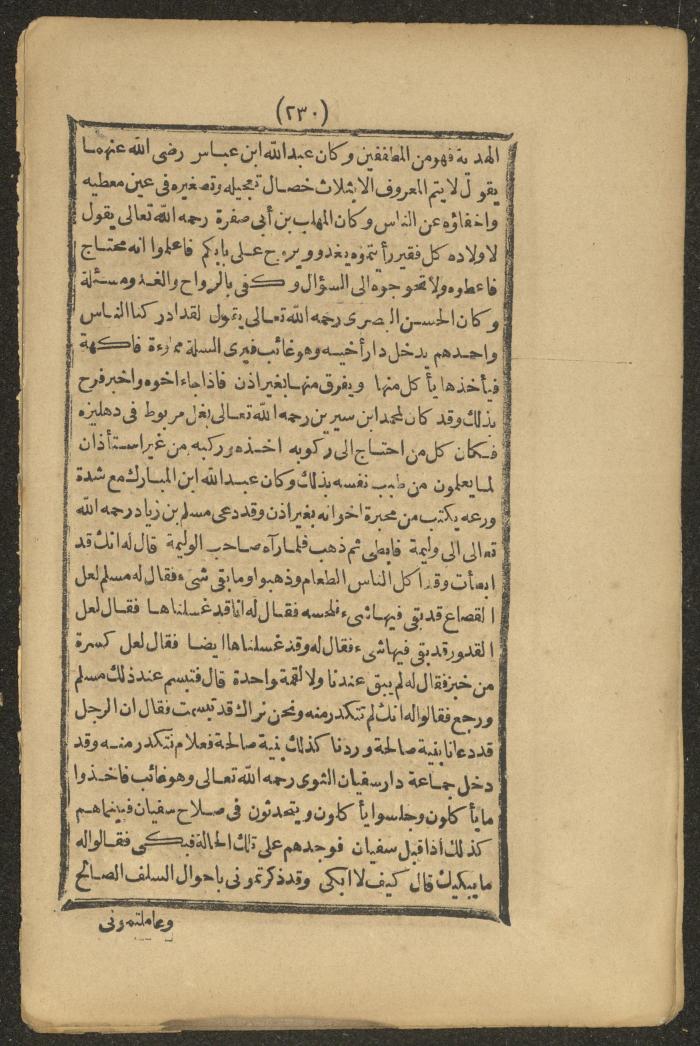 (٢٣٠)
الهدية فهو من المطففين وكان عبد الله ابن عباس رضى الله عنهما
يقول لا يتم المعروف الا بثلاث خصال تعجيله وتصغيره فى عين معطيه
واخفاؤه عن الناس وكان المهلب بن أبى صفرة رحمه الله تعالى يقول
لاولاده كل فقير رأيتموه يغدو ويروح على بابكم فاعلموا انه محتاج
فاعطوه ولا تحوجوه الى السؤال وكفى بالرواح والغدو مسئلة
وكان الحسن البصرى رحمه الله تعالى يقول لقد ادركنا الناس
واحدهم يدخل دار أخيه وهو غائب فيرى السلة مملوءة فاكهة
فيأخذها يأكل منها ويفرق منها بغير اذن فاذا جاء اخوه واخبر فرح
بذلك وقد كان لمحمد ابن سيرين رحمه الله تعالى بغل مربوط فى دهليزه
فكان كل من احتاج الى ركوبه اخذه وركبه من غير استأذان
لما يعلمون من طيب نفسه بذلك وكان عبد الله ابن المبارك مع شدة
ورعه يكتب من محبرة اخوانه بغير اذن وقد دعى مسلم بن زياد رحمه الله
تعالى الى وليمة فابطى ثم ذهب فلما رآه صاحب الوليمة قال له انك قد
ابطأت وقد اكل الناس الطعام وذهبوا وما بقى شىء فقال له مسلم لعل
القصاع قد بقى فيها شىء نلحسه فقال له انا قد غسلناها فقال لعل
القدور قد بقى فيها شىء فقال له وقد غسلناها ايضا فقال لعل كسرة
من خبز فقال له لم يبق عندنا ولا لقمة واحدة قال فتبسم عند ذلك مسلم
ورجع فقالوا له انك لم تتكدر منه ونحن نراك قد تبسمت فقال ان الرجل
قد دعانا بنية صالحة وردنا كذلك بنية صالحة فعلام نتكدر منه وقد
دخل جماعة دار سفيان الثورى رحمه الله تعالى وهو غائب فاخذوا
ما يأكلون وجلسوا يأكلون ويتحدثون فى صلاح سفيان فبينما هم
كذلك أذ اقبل سفيان فوجدهم على تلك الحالة فبكى فقالوا له
ما يبكيك قال كيف لا ابكى وقد ذكرتمونى باحوال السلف الصالح
وعاملتمونى